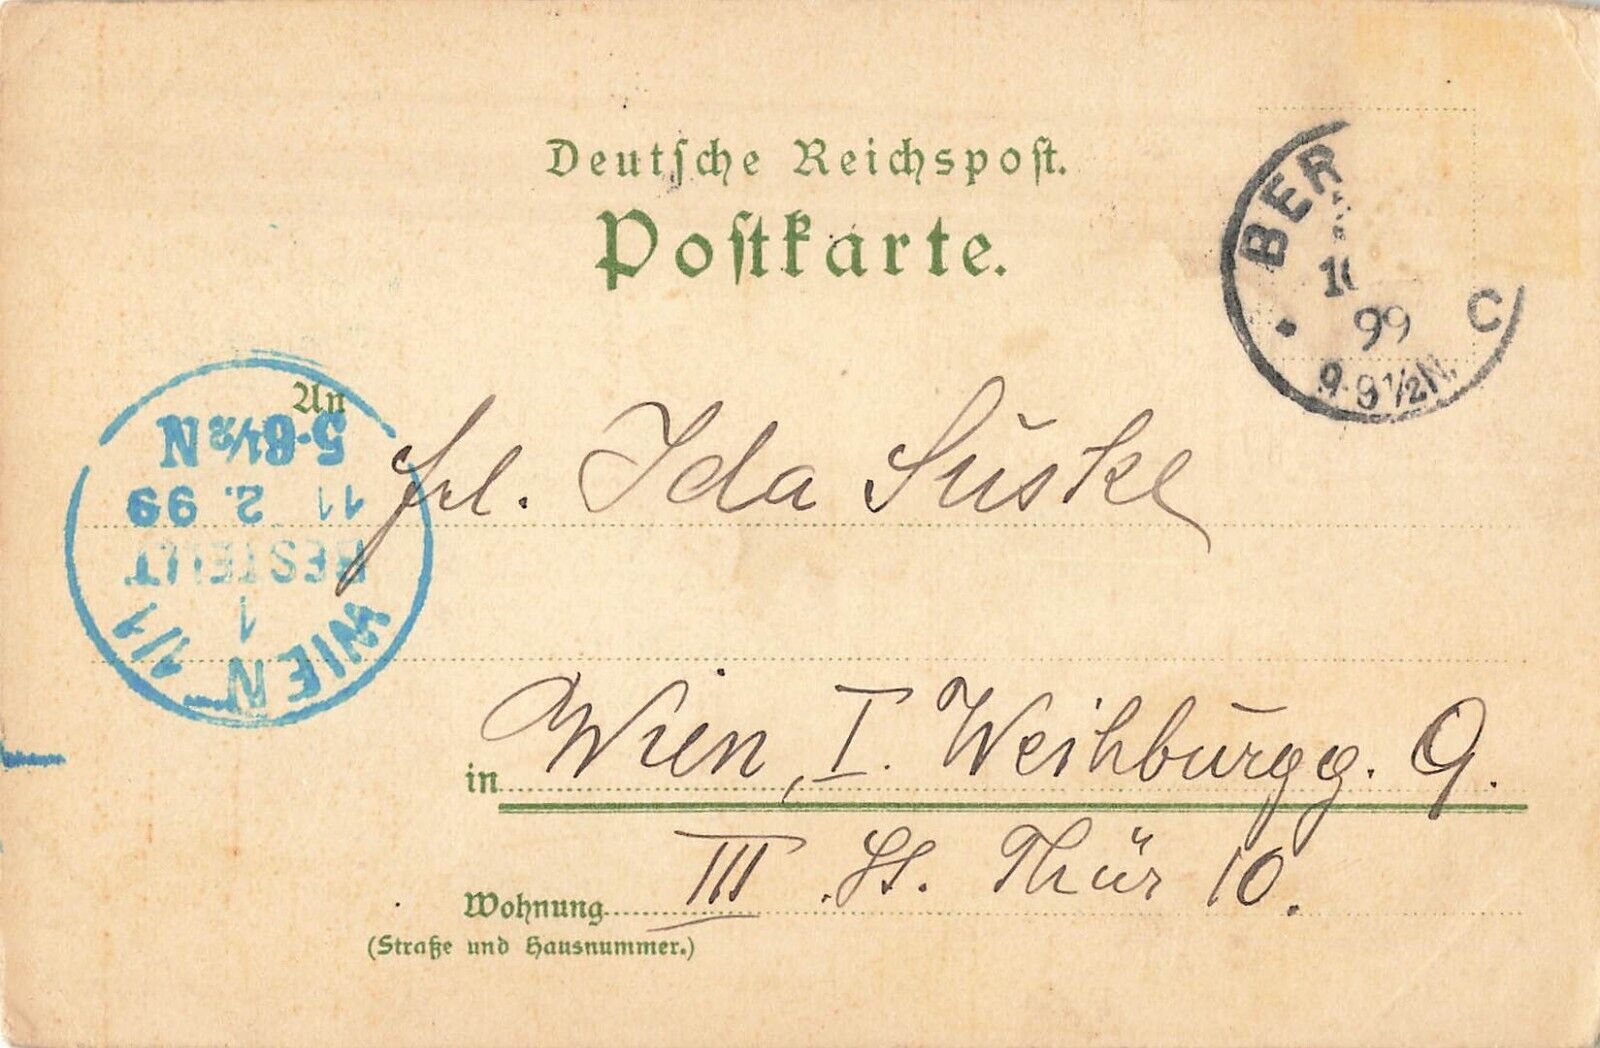 Deutsche Reichspost.
Postkarte.
BER
10
99
C
9-9½N.
An
Frl. Ida Süske
WIEN 1/1
1
BESTELLT
11 2. 99
5-6½N
in Wien, I. Weihburgg. 9.
Wohnung III. St. Thür 10.
(Straße und Hausnummer.)